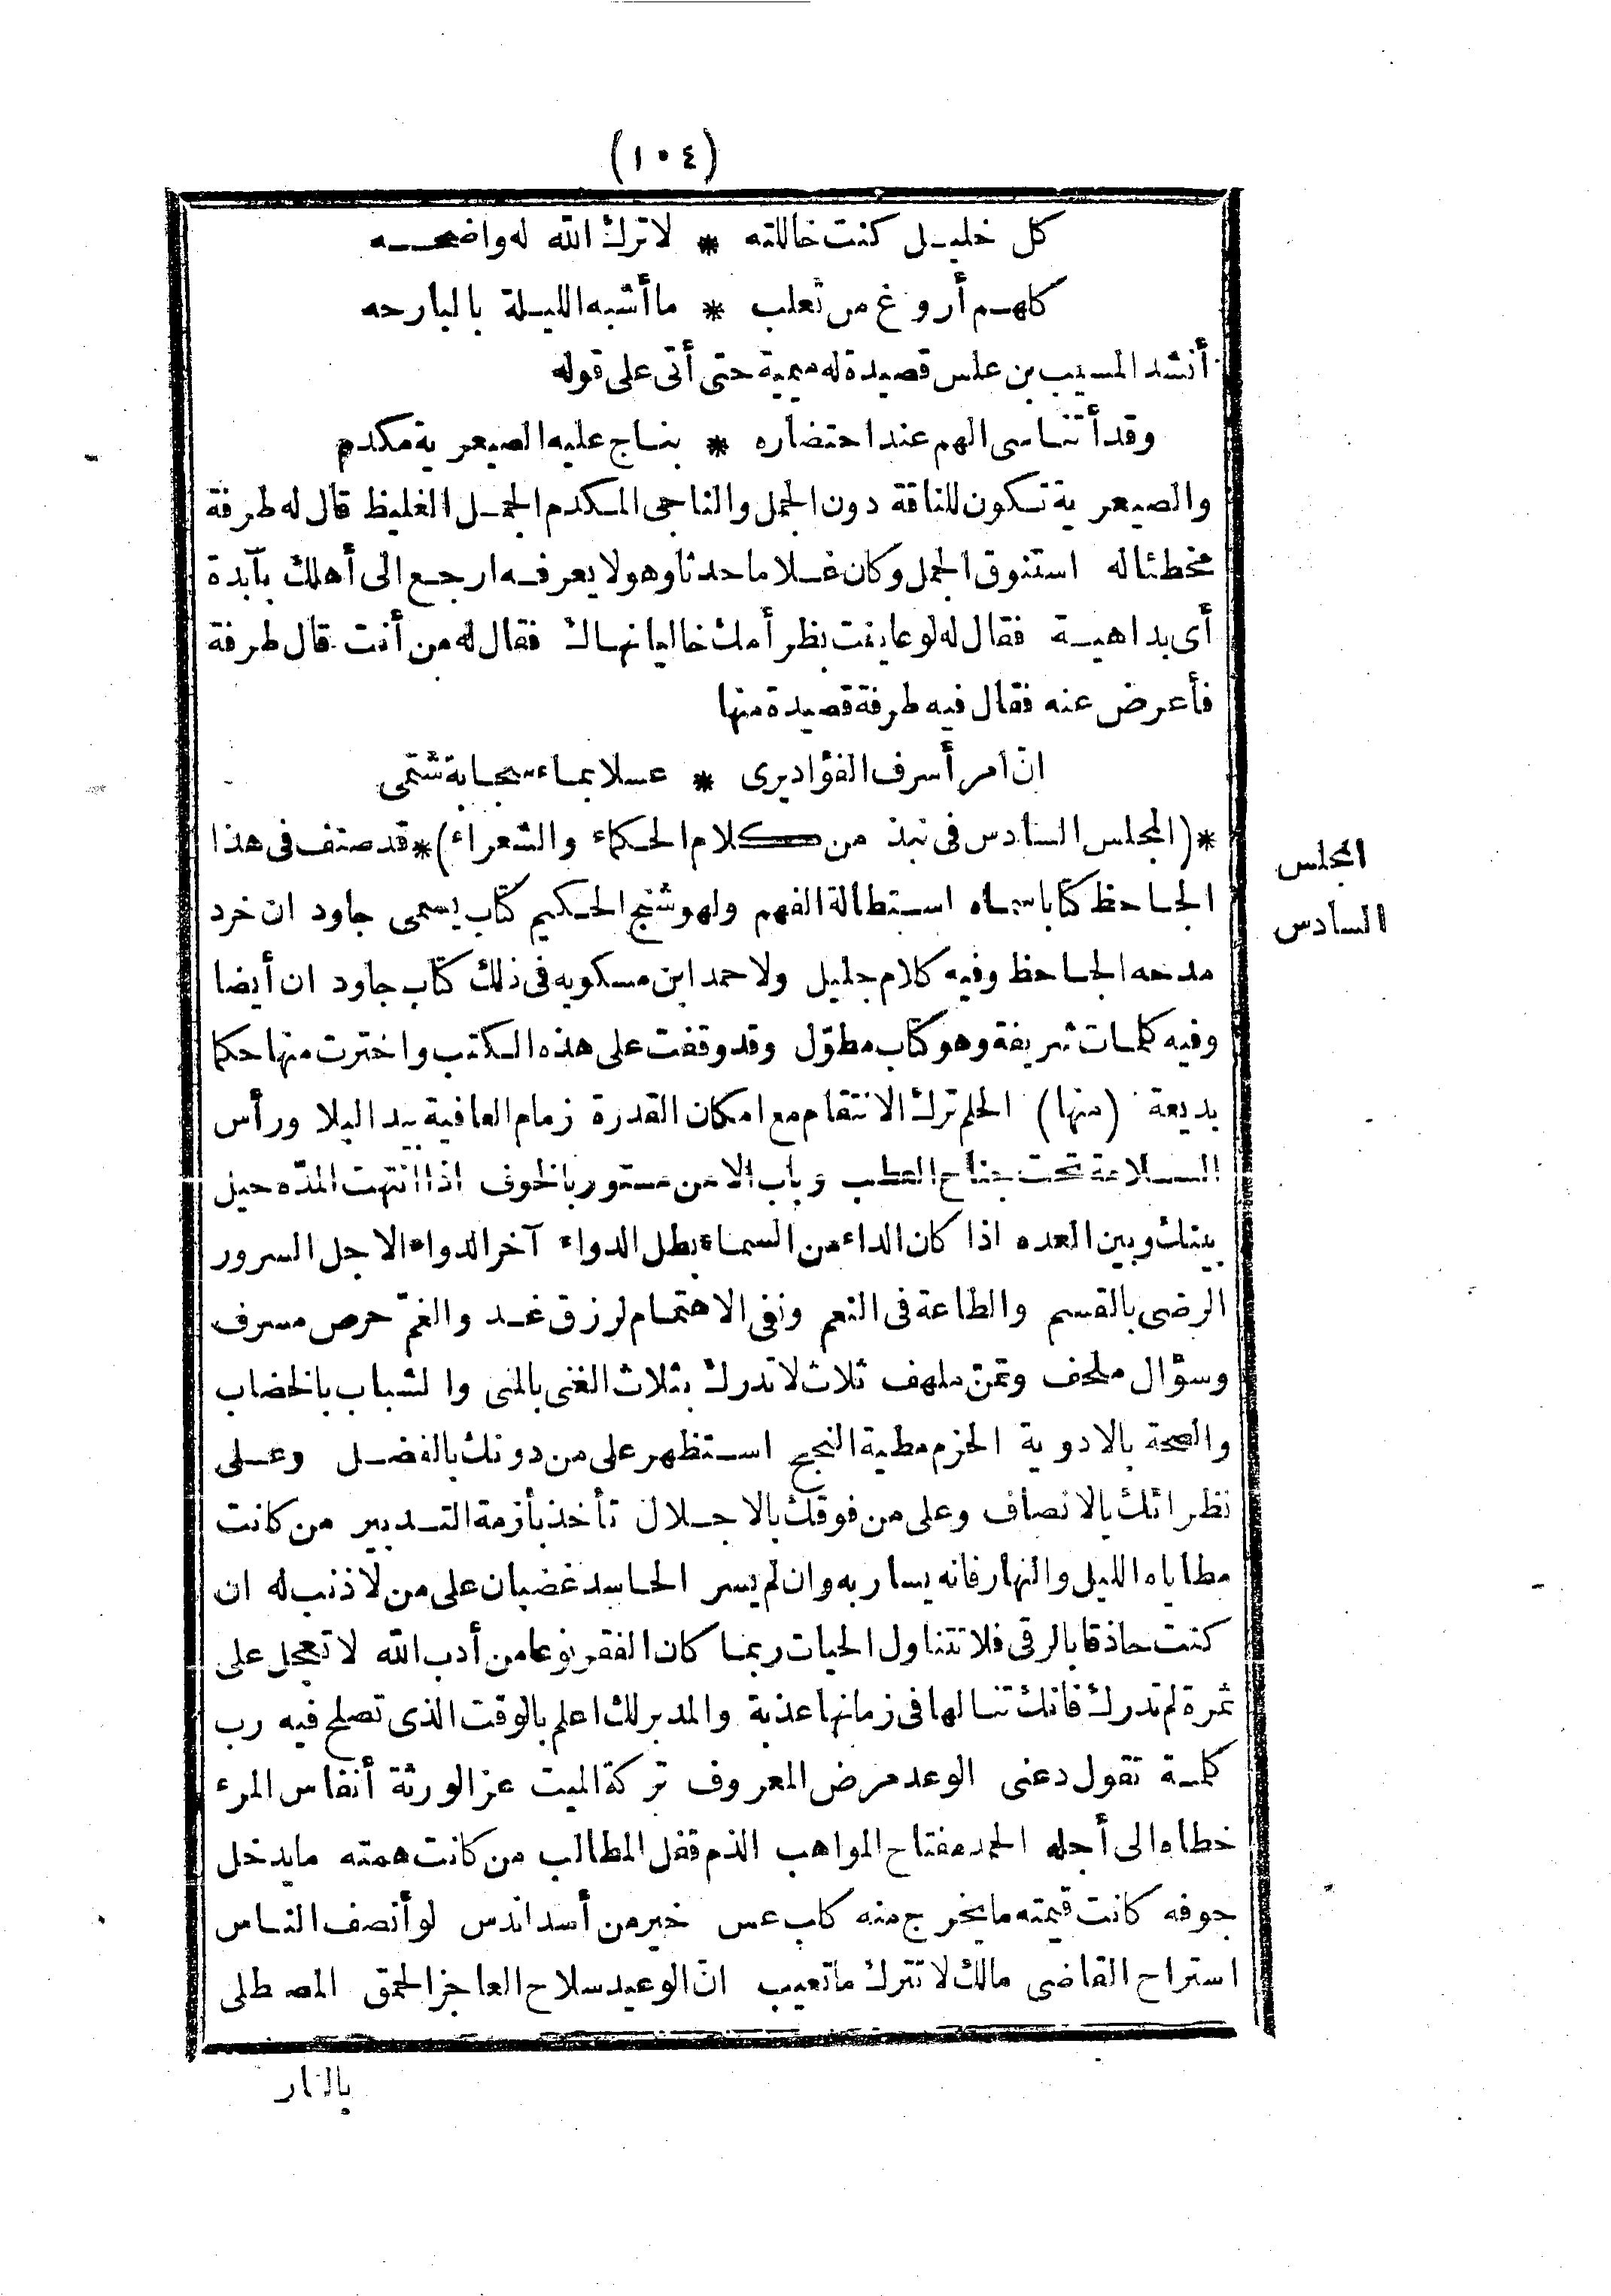 (١٠٤)
كل خليل كنت خاللته * لا ترك الله له واضحه
كلهم أروغ من ثعلب * ما أشبه الليلة بالبارحه
أنشد المسيب بن علس قصيدة له ميمية حتى أتى على قوله
وقد أتناسى الهم عند احتضاره * بناج عليه الصيعرية مكدم
والصيعرية تكون للناقة دون الجمل والناجى المكدم الجمل الغليظ قال له طرفة
مخطئا له استنوق الجمل وكان غلاما حدثا وهو لا يعرفه ارجع الى أهلك بآبدة
أى بداهية فقال له لو عاينت بظر أمك خاليا نهاك فقال له من أنت قال طرفة
فأعرض عنه فقال فيه طرفة قصيدة منها
انّ امرأ سرف الفؤاد يرى * عسلا بماء سحابة شتمى
*(المجلس السادس فى نبذ من كلام الحكماء والشعراء)* قد صنف فى هذا
المجلس
السادس
الجاحظ كتابا سماه استطالة الفهم ولهوشنج الحكيم كتاب يسمى جاود ان خرد
مدحه الجاحظ وفيه كلام جليل ولاحمد ابن مسكويه فى ذلك كتاب جاود ان أيضا
وفيه كلمات شريفة وهو كتاب مطوّل وقد وقفت على هذه الكتب واخترت منها حكما
بديعة (منها) الحلم ترك الانتقام مع امكان القدرة زمام العافية بيد البلا ورأس
السلامة تحت جناح العطب وباب الامن مستور بالخوف اذا انتهت المدّه حيل
بينك وبين العده اذا كان الداء من السماء بطل الدواء آخر الدواء الاجل السرور
الرضى بالقسم والطاعة فى النعم ونفى الاهتمام لرزق غد والغمّ حرص مسرف
وسؤال ملحف وتمنّ ملهف ثلاث لا تدرك بثلاث الغنى بالمنى والشباب بالخضاب
والصحة بالادوية الحزم مطية النجح استظهر على من دونك بالفضل وعلى
نظرائك بالانصاف وعلى من فوقك بالاجلال تأخذ بأزمة التدبير من كانت
مطاياه الليل والنهار فانه يسار به وان لم يسر الحاسد غضبان على من لا ذنب له ان
كنت حاذقا بالرقى فلا تتناول الحيات ربما كان الفقر نوعا من أدب الله لا تعجل على
ثمرة لم تدرك فانك تنالها فى زمانها عذبة والمدبر لك اعلم بالوقت الذى تصلح فيه رب
كلمة تقول دعنى الوعد مرض المعروف تركة الميت عز الورثة أنفاس المرء
خطاه الى أجله الحمد مفتاح المواهب الذم قفل المطالب من كانت همته ما يدخل
جوفه كانت قيمته ما يخرج منه كلب عس خير من أسد اندس لو أنصف الناس
استراح القاضى مالك لا تترك ما تعيب انّ الوعيد سلاح العاجز الحمق المصطلى
بالنار